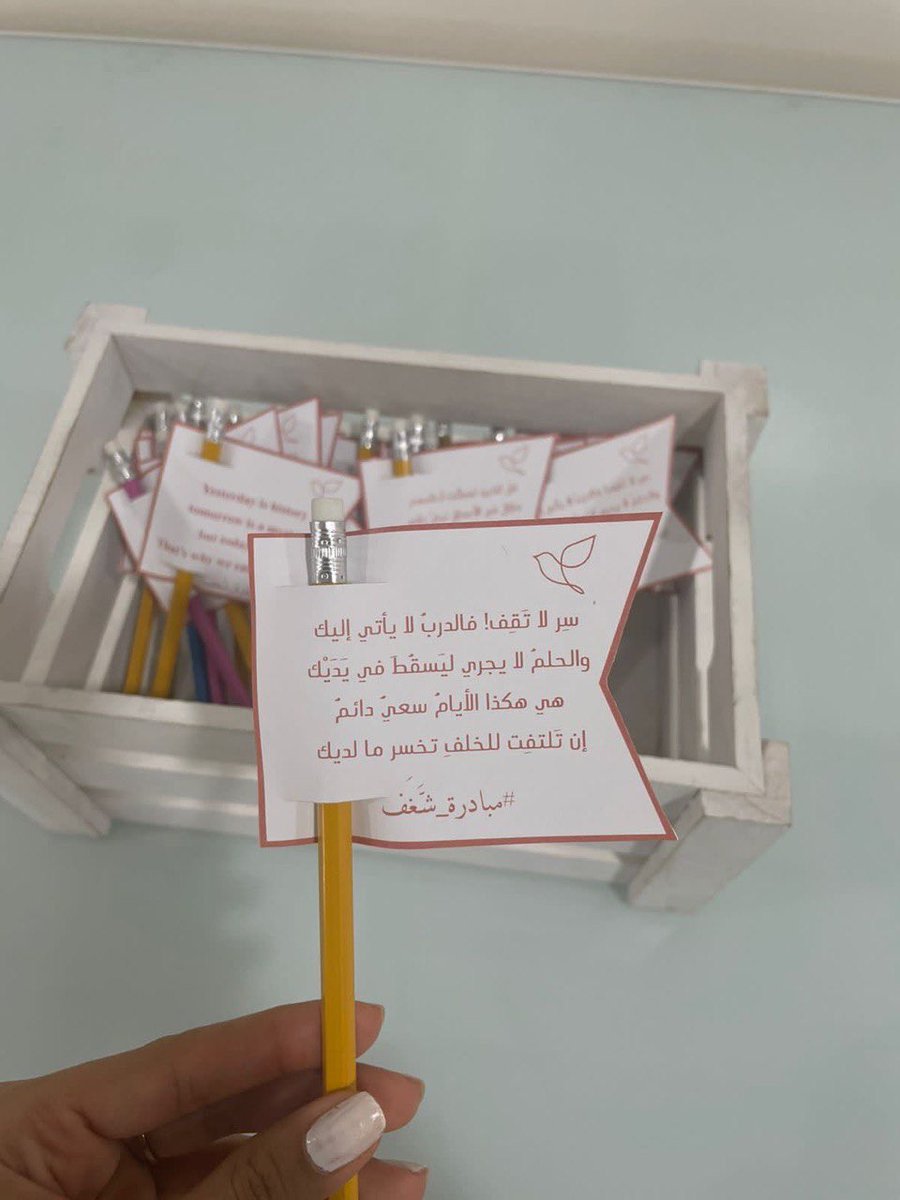 سِر لا تَقِف! فالدربُ لا يأتي إليك
والحلمُ لا يجري ليَسقُطَ في يَدَيْك
هي هكذا الأيامُ سعيٌ دائمٌ
إن تَلتفِت للخلفِ تخسر ما لديك
#مبادرة_شَغَفْ
Yesterday is history
tomorrow is a
but today
That's why we